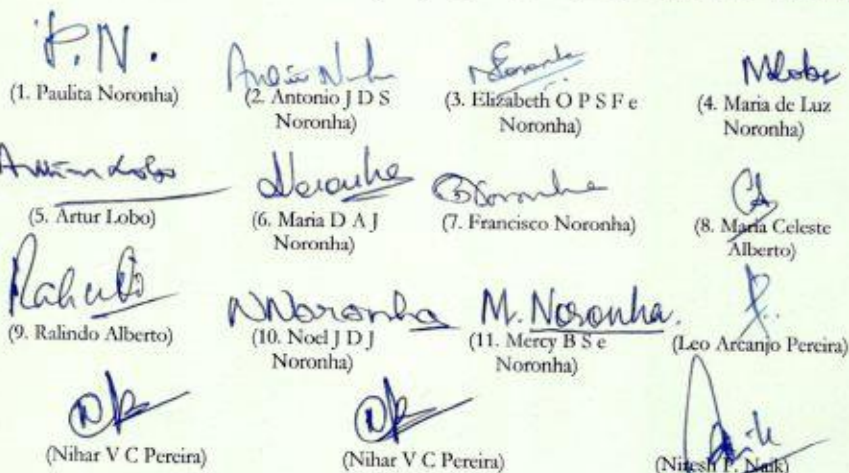 P. N.
(1. Paulita Noronha)
(2. Antonio J D S
Noronha)
(3. Elizabeth O P S F e
Noronha)
MLobo
(4. Maria de Luz
Noronha)
Lobo
(5. Artur Lobo)
Noronha
(6. Maria D A J
Noronha)
Noronha
(7. Francisco Noronha)
(8. Maria Celeste
Alberto)
(9. Ralindo Alberto)
NNoronha
(10. Noel J D J
Noronha)
M. Noronha.
(11. Mercy B S e
Noronha)
(Leo Arcanjo Pereira)
(Nihar V C Pereira)
(Nihar V C Pereira)
(Nitesh P. Naik)